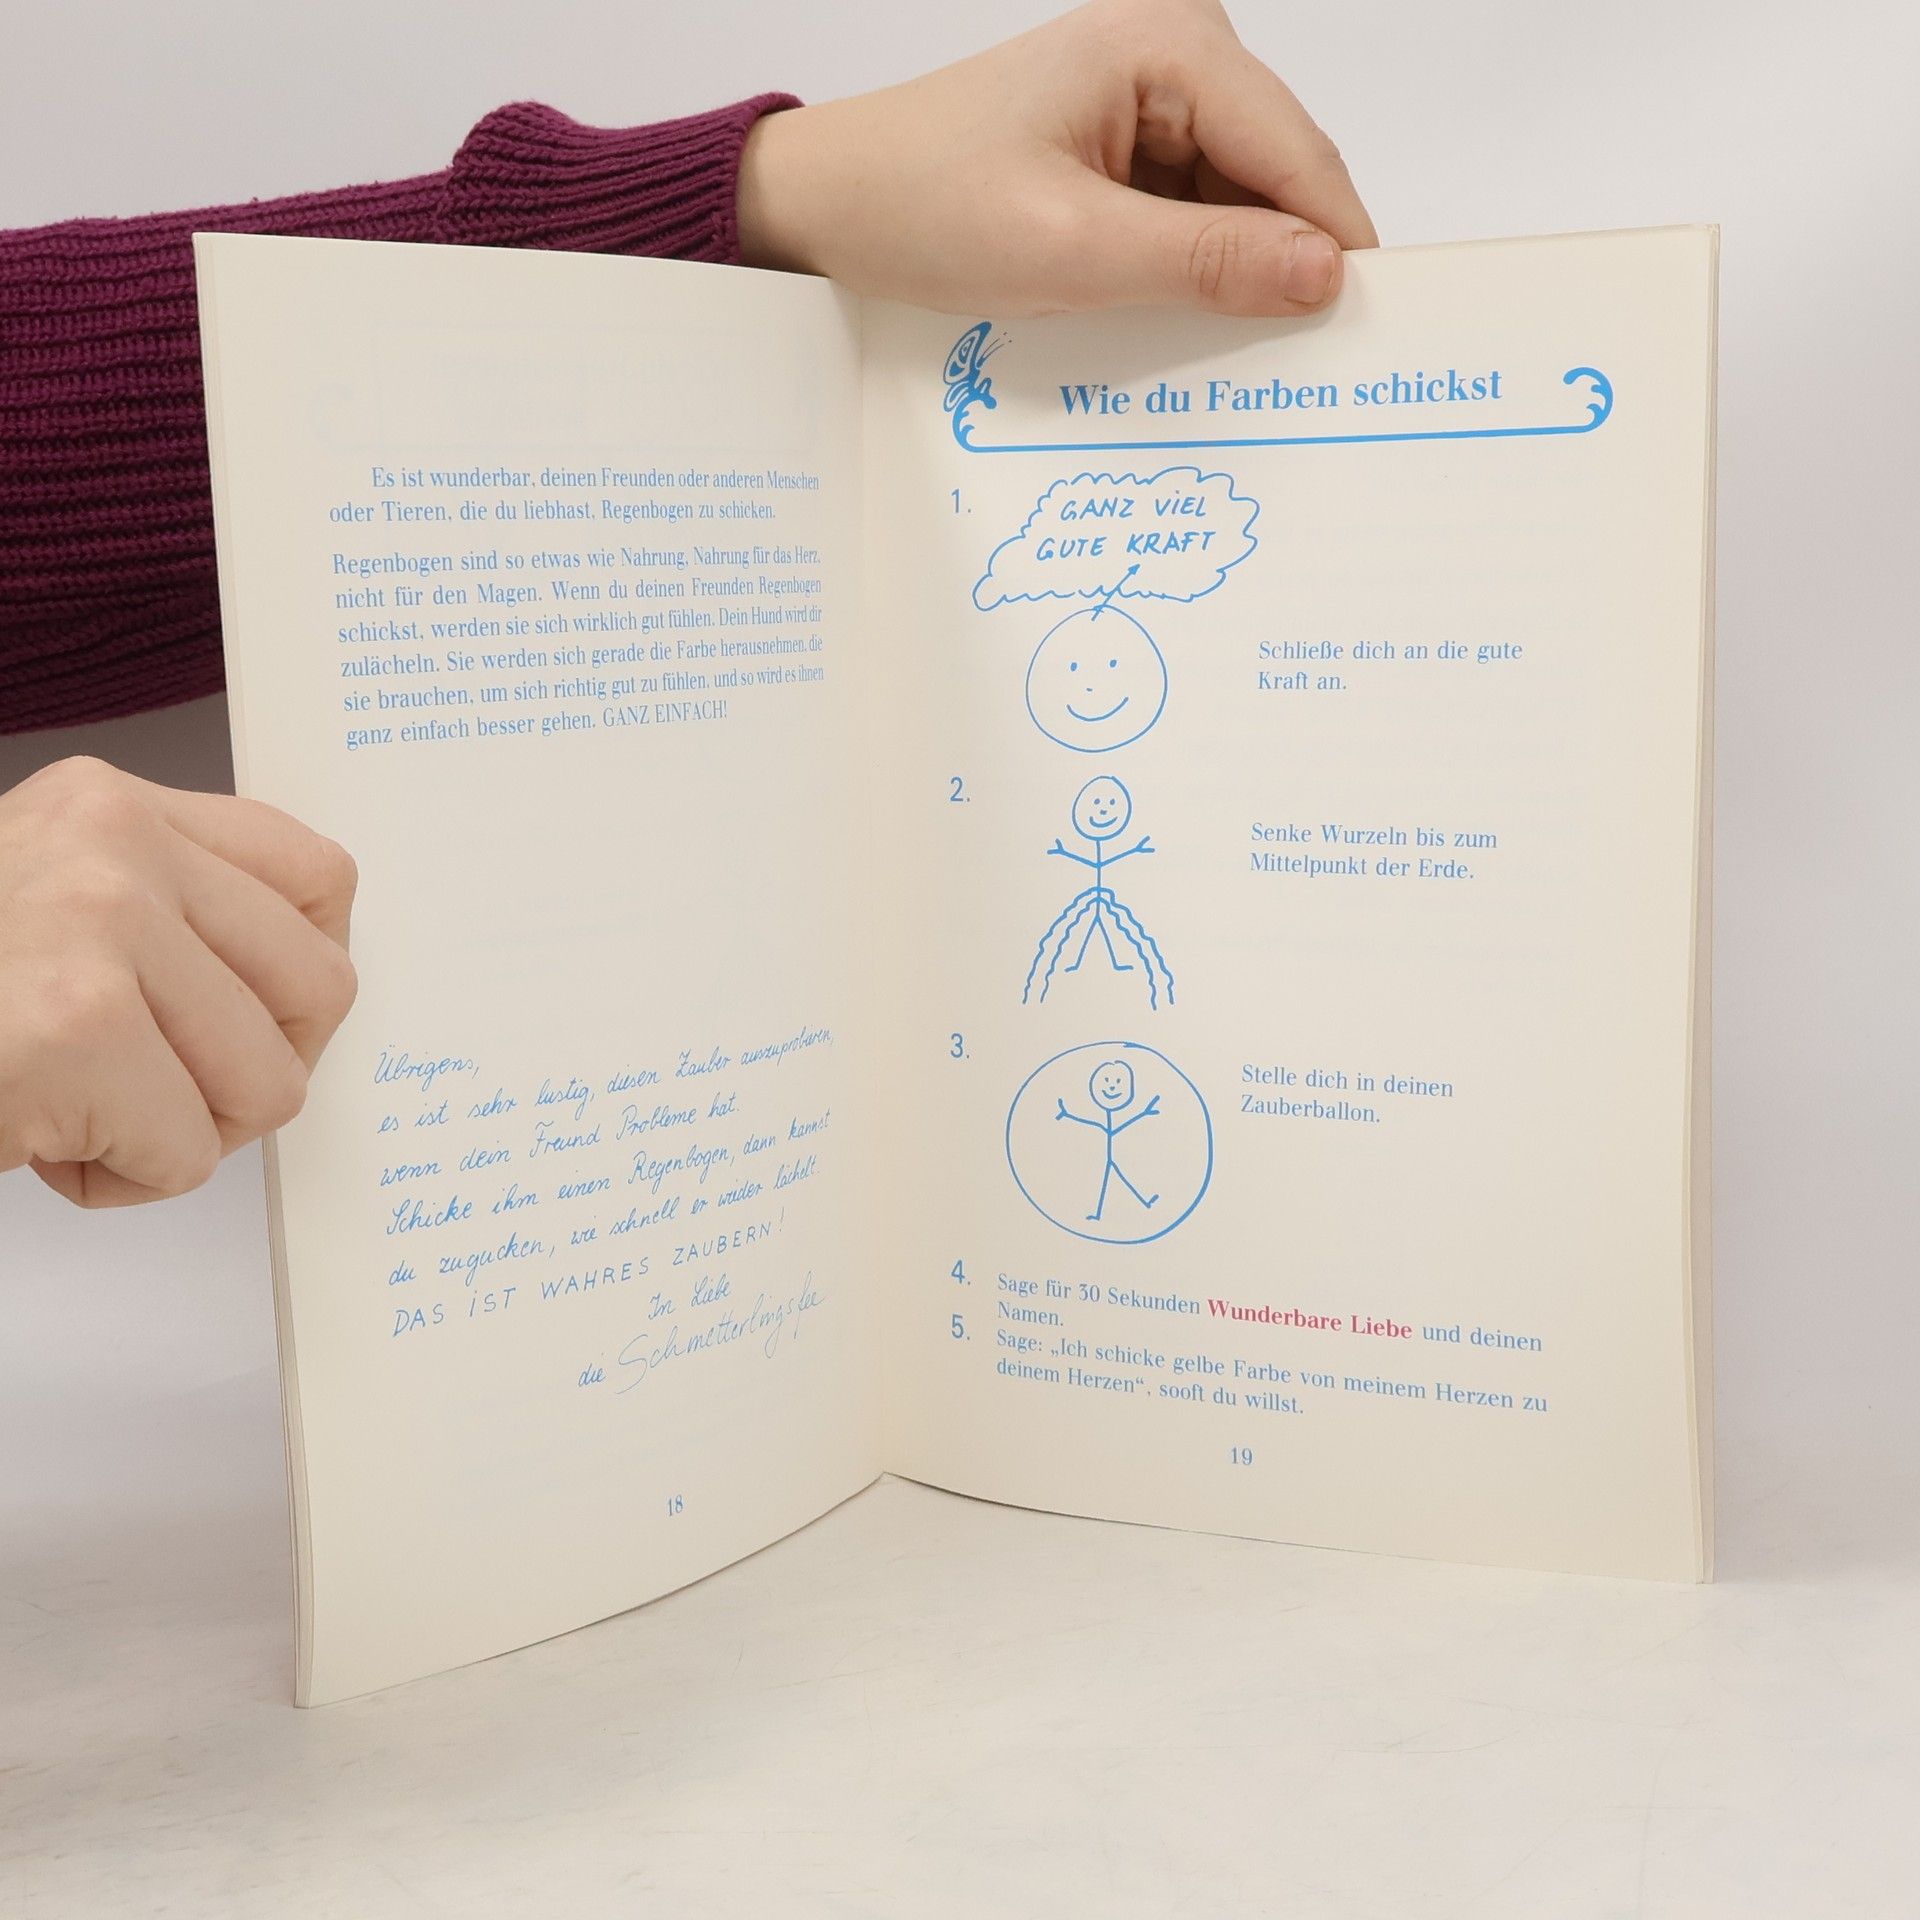 Es ist wunderbar, deinen Freunden oder anderen Menschen
oder Tieren, die du liebhast, Regenbogen zu schicken.
Regenbogen sind so etwas wie Nahrung, Nahrung für das Herz,
nicht für den Magen. Wenn du deinen Freunden Regenbogen
schickst, werden sie sich wirklich gut fühlen. Dein Hund wird dir
zulächeln. Sie werden sich gerade die Farbe herausnehmen, die
sie brauchen, um sich richtig gut zu fühlen, und so wird es ihnen
ganz einfach besser gehen. GANZ EINFACH!
Übrigens,
es ist sehr lustig, diesen Zauber auszuprobieren,
wenn dein Freund Probleme hat.
Schicke ihm einen Regenbogen, dann kannst
du zugucken, wie schnell er wieder lächelt.
DAS iST WAHRES ZAUBERN!
In Liebe
die Schmetterlingsfee
18
Wie du Farben schickst
1.
GANZ ViEL
GUTE KRAFT
Schließe dich an die gute
Kraft an.
2.
Senke Wurzeln bis zum
Mittelpunkt der Erde.
3.
Stelle dich in deinen
Zauberballon.
4. Sage für 30 Sekunden Wunderbare Liebe und deinen
Namen.
5. Sage: „Ich schicke gelbe Farbe von meinem Herzen zu
deinem Herzen“, sooft du willst.
19